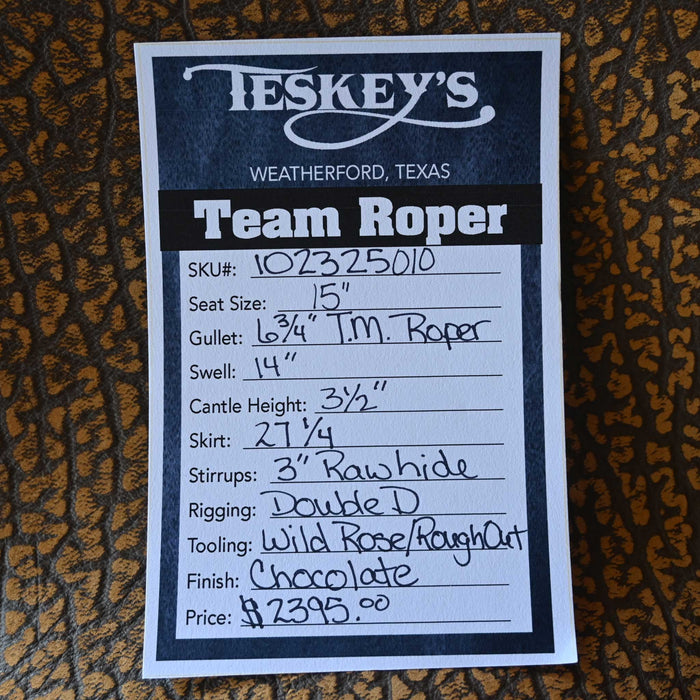 TESKEY'S
WEATHERFORD, TEXAS
Team Roper
SKU#: 102325010
Seat Size: 15"
Gullet: 6 3/4" T.M. Roper
Swell: 14"
Cantle Height: 3 1/2"
Skirt: 27 1/4
Stirrups: 3" Rawhide
Rigging: Double D
Tooling: Wild Rose/RoughOut
Finish: Chocolate
Price: $2395.00